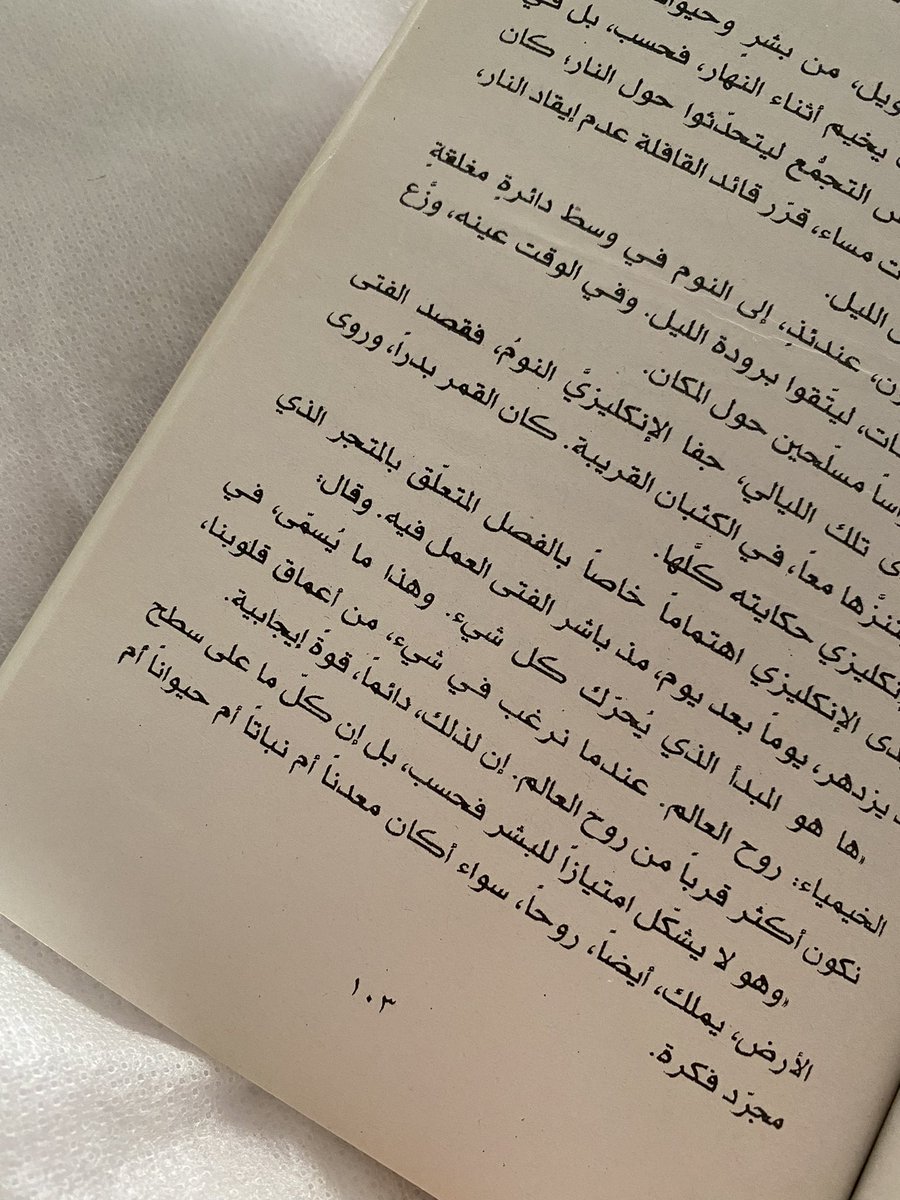 من بشرٍ
يخيم أثناء النهار، فحسب، بل في
التجمُّع ليتحدّثوا حول النار؛ كان
مساء، قرّر قائد القافلة عدم إيقاد النار،
الليل.
عندئذٍ، إلى النوم في وسط دائرةٍ مغلقةٍ
ليتّقوا برودة الليل. وفي الوقت عينه، وزَّع
مسلّحين حول المكان.
تلك الليالي، جفا الإنكليزيَّ النومُ، فقصد الفتى
معاً، في الكثبان القريبة. كان القمر بدراً، وروى
حكايته كلَّها.
الإنكليزي اهتماماً خاصاً بالفصل المتعلّق بالمتجر الذي
يزدهر، يوماً بعد يوم، مذ باشر الفتى العمل فيه. وقال:
«ها هو المبدأ الذي يُحرّك كل شيء. وهذا ما يُسمّى، في
الخيمياء: روح العالم. عندما نرغب في شيء، من أعماق قلوبنا،
نكون أكثر قرباً من روح العالم. إن لذلك، دائماً، قوةً إيجابية.
«وهو لا يشكّل امتيازاً للبشر فحسب، بل إن كلّ ما على سطح
الأرض، يملك، أيضاً، روحاً، سواء أكان معدناً أم نباتاً أم حيواناً أم
مجرّد فكرة.
١٠٣